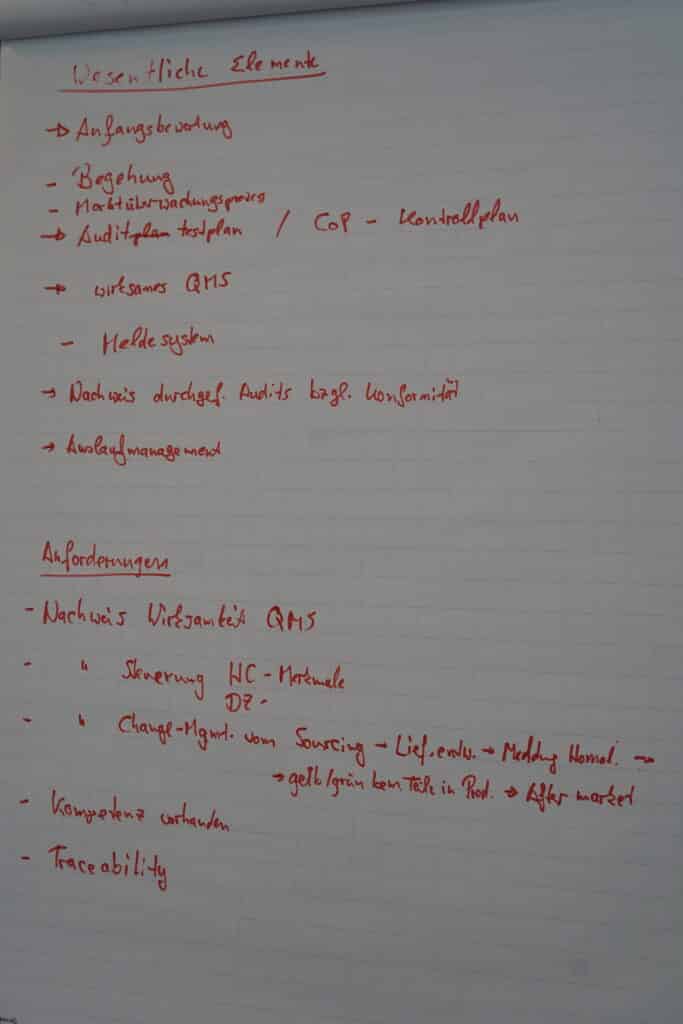 Wesentliche Elemente
→ Anfangsbewertung
- Begehung
- Marktüberwachungsprozess
→ Auditplan testplan / CoP - Kontrollplan
→ wirksames QMS
- Meldesystem
→ Nachweis durchgef. Audits bzgl. Konformität
→ Auslaufmanagement
Anforderungen
- Nachweis Wirksamkeit QMS
- " Steuerung HC - Merkmale
DZ -
- " Change-Mgmt. vom Sourcing → Lief. → Meldung Homol. →
→ gelb/grün Teile in Prod. → After market
- Kompetenz vorhanden
- Traceability